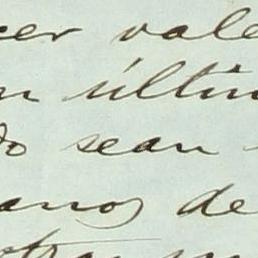 cer vale
n últim
do sean
anos de